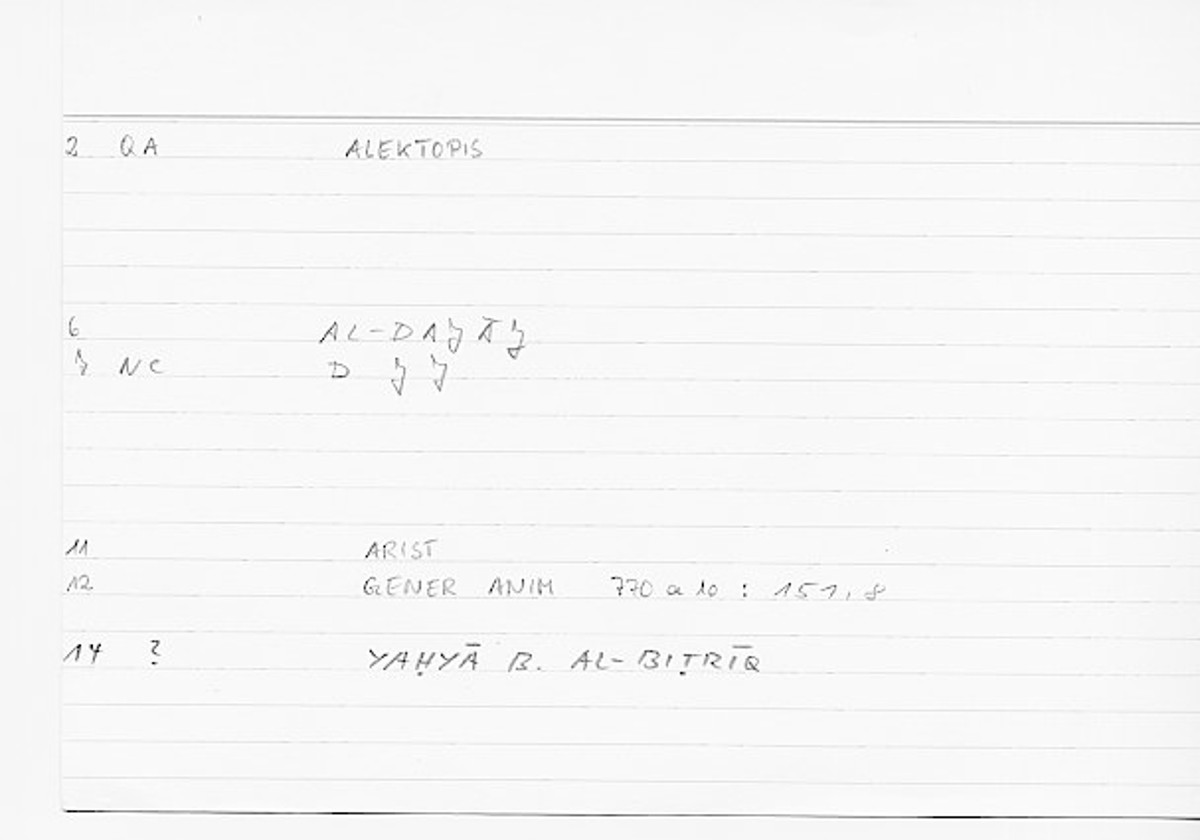 2 QA ALEKTOPIS
6 AL-DAJ̌ĀJ̌
7 NC D J̌ J̌
11 ARIST
12 GENER ANIM 770 a 10 : 151,8
14 ? YAḤYĀ B. AL-BIṬRĪQ